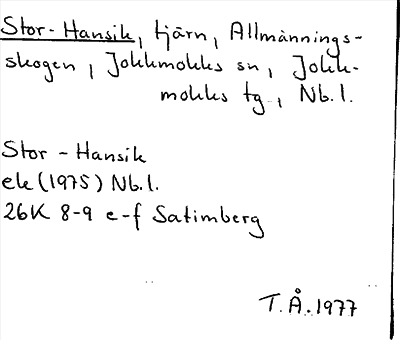 Stor-Hansik, tjärn, Allmännings-
skogen, Jokkmokks sn, Jokk-
mokks tg, Nb.l.
Stor-Hansik
ek (1975) Nb.l.
26K 8-9 e-f Satimberg
T.Å. 1977